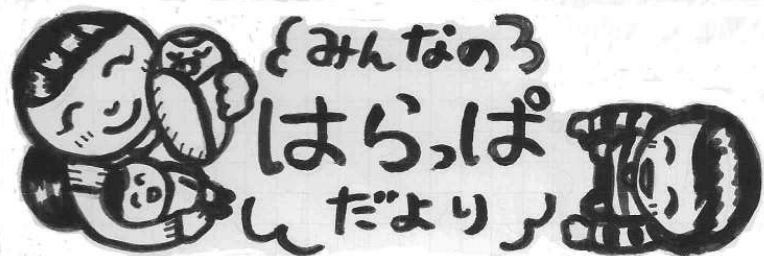 みんなの
はらっぱ
だより